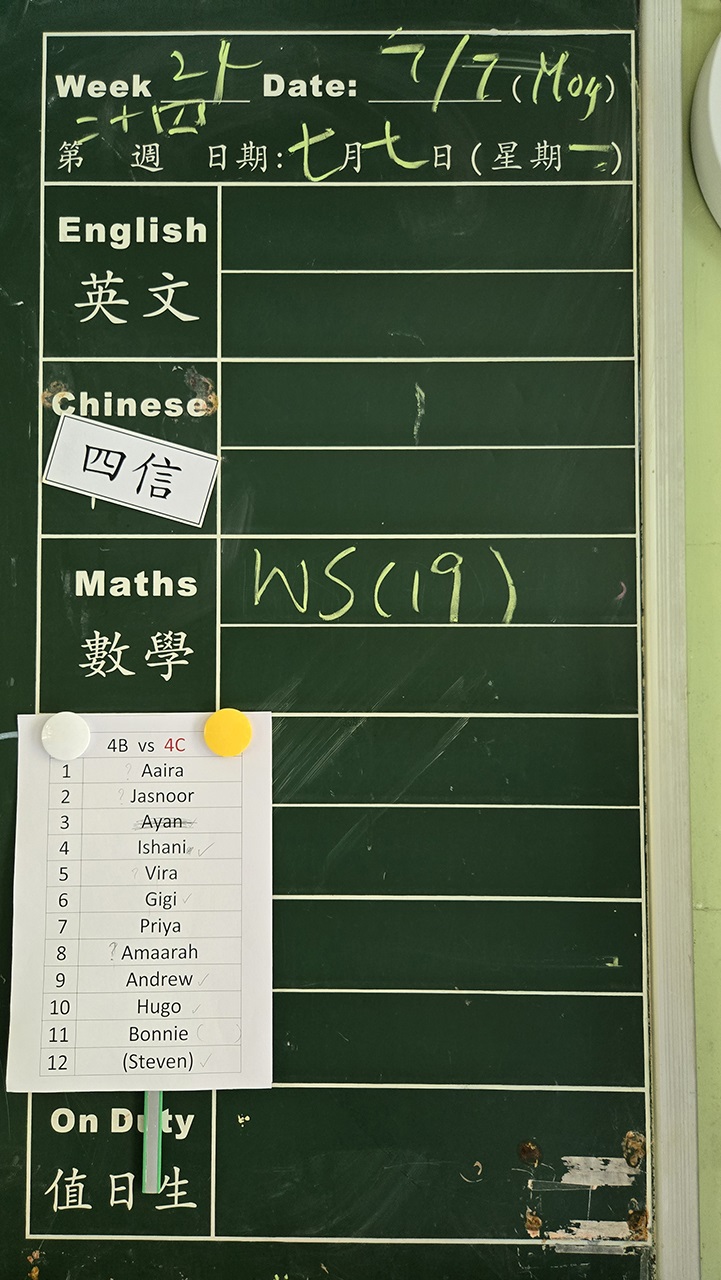 Week 24 Date: 7/7 (Mon)
第二十四週 日期:七月七日(星期一)
English
英文
Chinese
四信
Maths WS(19)
數學
4B vs 4C
1 ? Aaira
2 ? Jasnoor
3 Ayan
4 Ishani ✓
5 ? Vira
6 Gigi ✓
7 Priya
8 ? Amaarah
9 Andrew ✓
10 Hugo ✓
11 Bonnie ( )
12 (Steven) ✓
On Duty
值日生